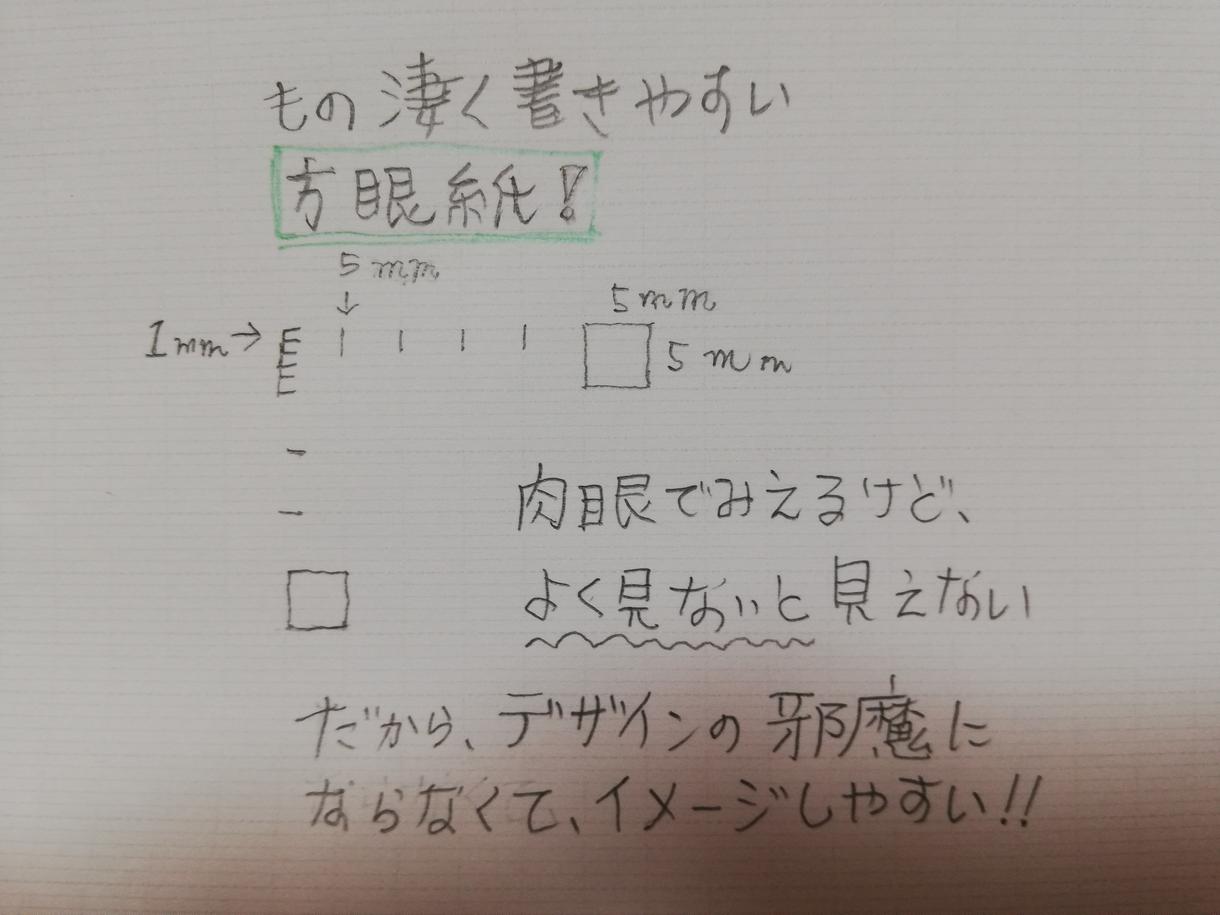 もの凄く書きやすい
方眼紙!
5mm
↓
5mm
1mm→
5mm
肉眼でみえるけど、
よく見ないと見えない
だから、デザインの邪魔に
ならなくて、イメージしやすい!!